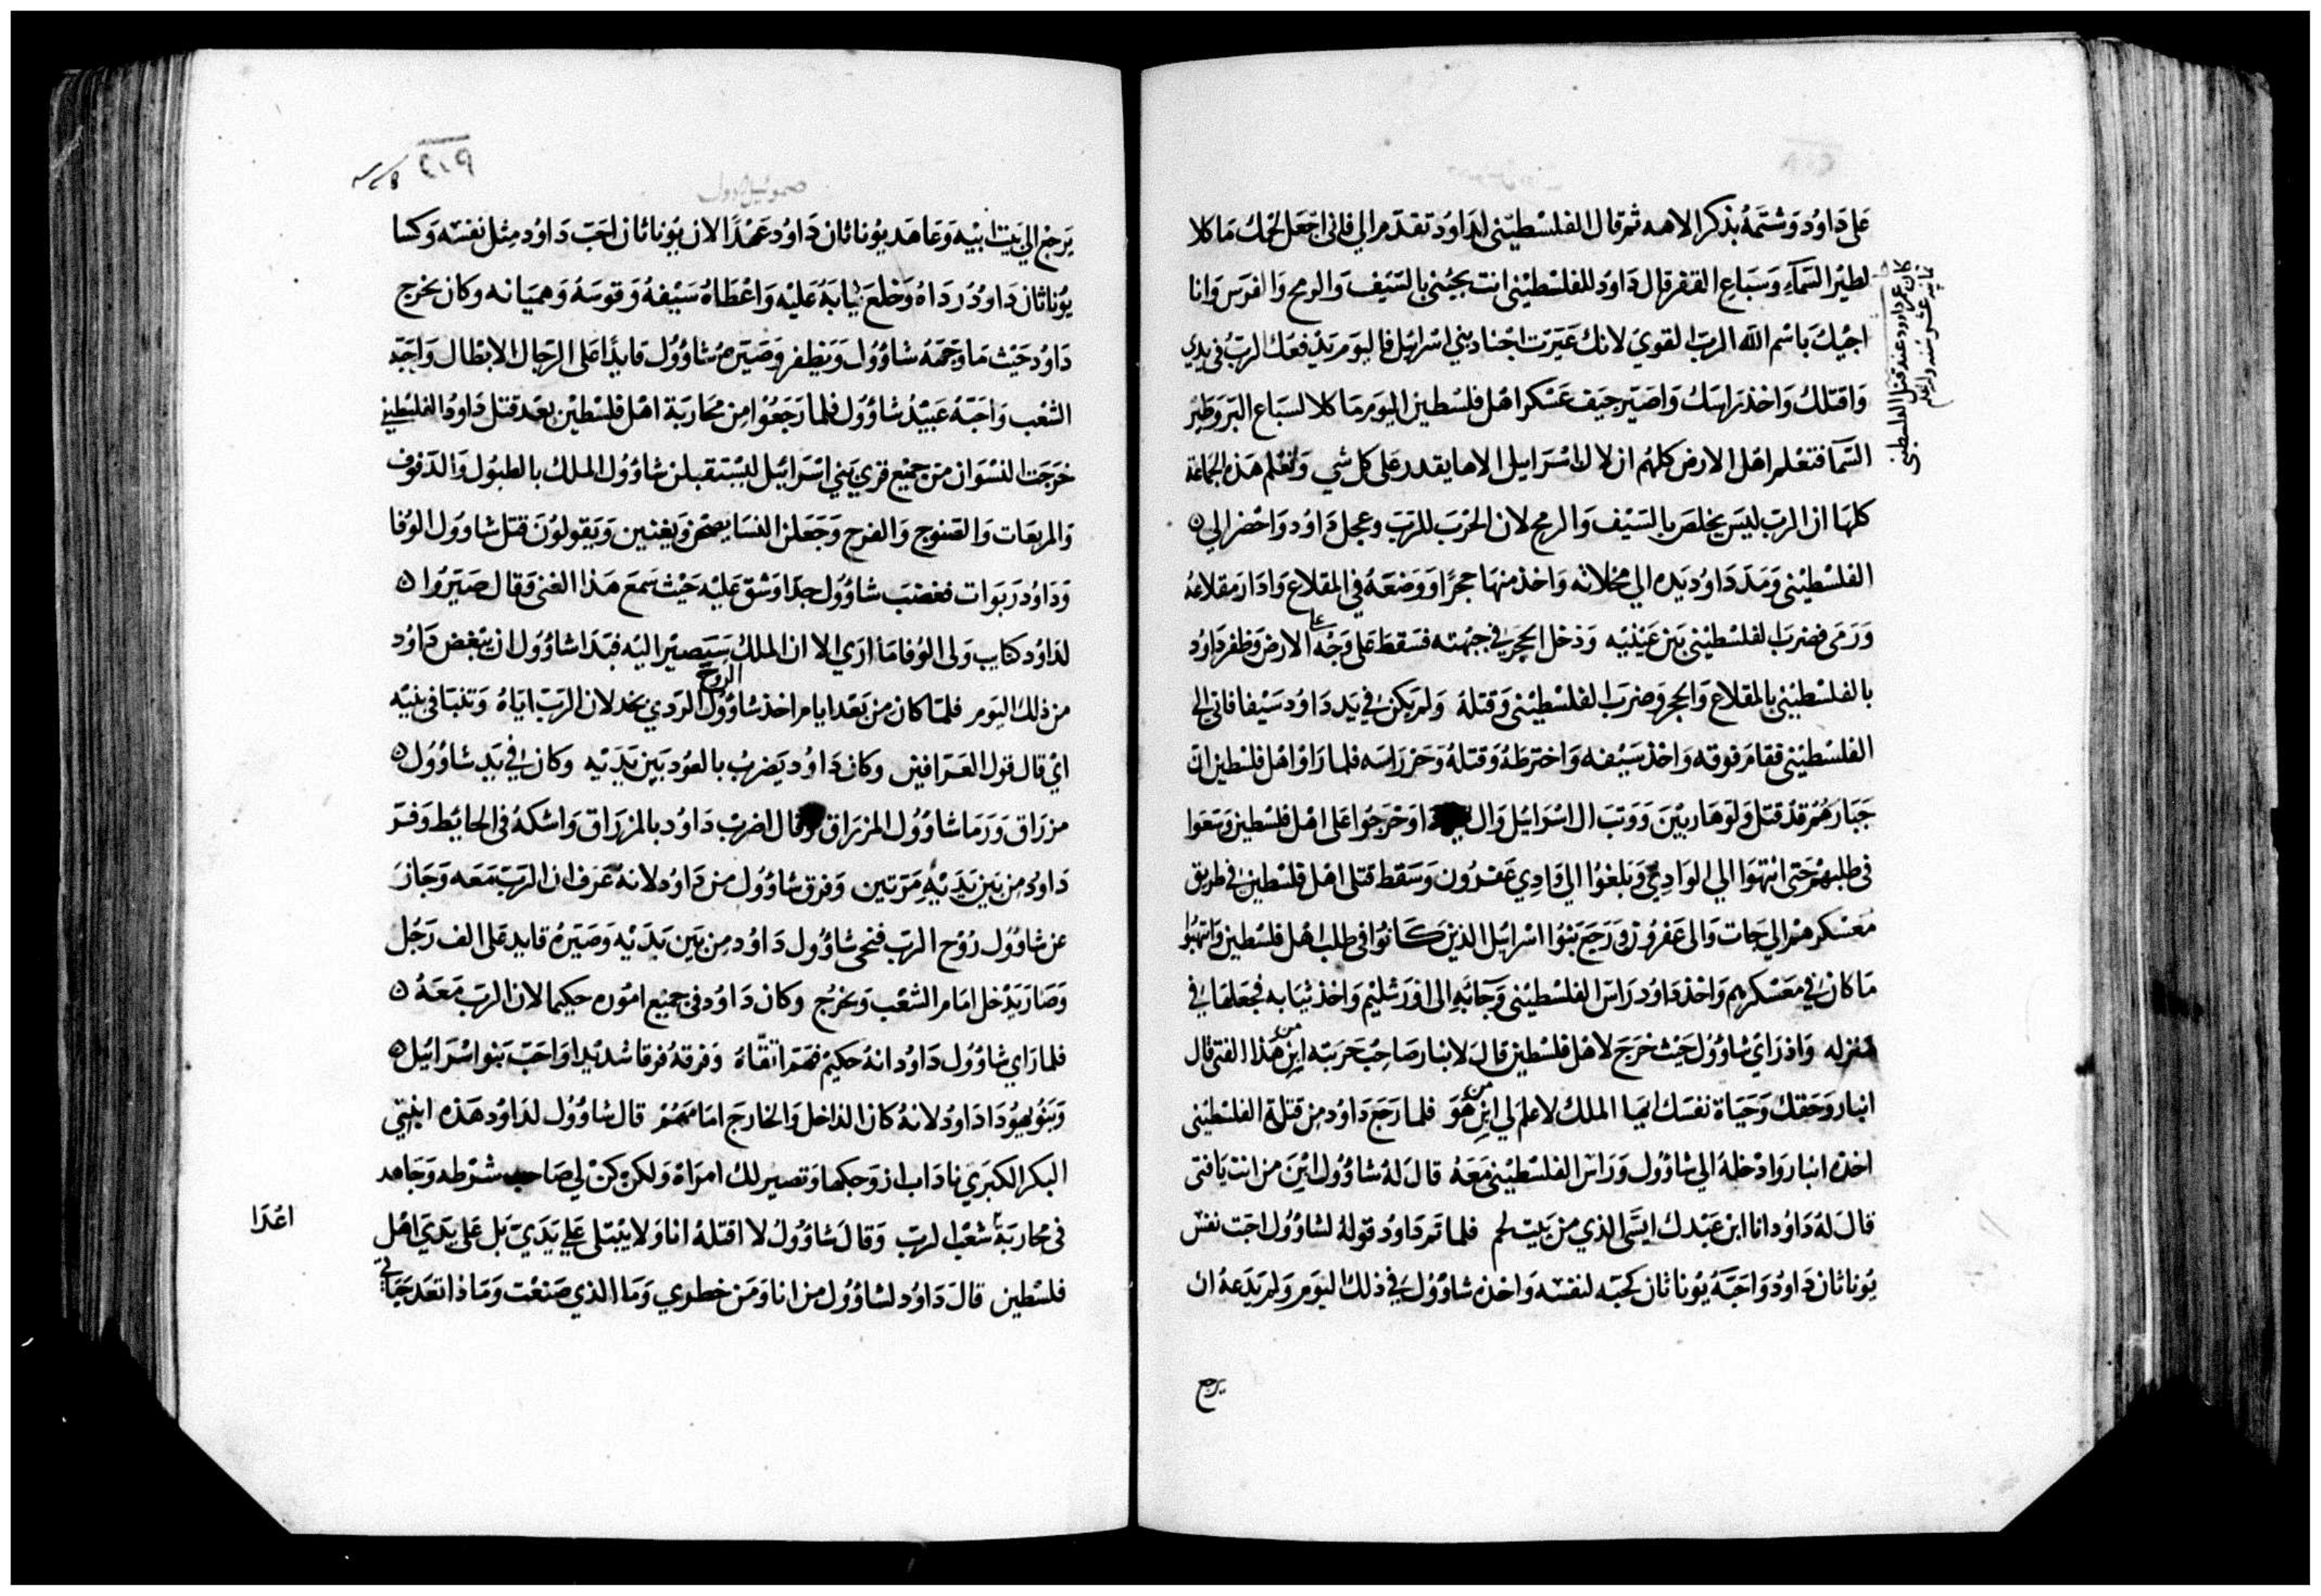 على داوُد وشتمهُ بذكر الاهه ثم قال الفلسْطيني لداوُد تقدم الي فاني اجْعل لحمك ماكلا
لطيْر السَمآء وسَباع القفر قال داوُد للفلسْطيْني انت بجيْني بالسَيف والرمح والفرس وانا
اجيْك باسْم الله الرب القوي لانك عَيرت اجْناد بني اسرايْل فاليوم يدْفعك الرب في يدي
واقتلك واخذ راسَك واصَير جيَف عَسْكر اهْل فلسْطين اليوم ماكلا لسَباع البَر وطيْر
السَمآ فتعْلم اهْل الارض كلهم ان لال اسْرَاييل الاها يقدر على كل شي وتعْلم هذه الجماعَة
كلها ان الرب ليسَ يخلصَ بالسَيْف والرمح لان الحرْبَ للرَب وعجل داوُد واحْضر الي ٥
الفلسْطيْني ومَد داوُد يَده الي مخلاته واخذ منها حجرًا ووضعَهُ في المقلاع وادارَ مقلاعَهُ
ورَمى فضرب الفلسْطيْني بَين عَيْنيْه ودَخل الحجر في جبْهته فسَقط على وجْهه على الارض وظفر داوُد
بالفلسْطيْني بالمقلاع والحجر وضرب الفلسْطيْني وقتلهُ ولم يكن في يَد داوُد سَيْفا فاتي الي
الفلسْطيْني فقام فوقه واخذ سَيْفه واخترطهُ وقتلهُ وحز راسَه فلما راوا اهْل فلسْطين ان
جَبارهُم قدْ قتل ولوا هاربيْنَ ووثب ال اسْرايْل وال وخرجُوا على اهْل فلسْطين وسَعَوا
في طلبهمْ حَتى انتهَوا الي الوادي وبَلغوا الي وادي عَفرُون وسَقط قتلى اهْل فلسْطين في طريق
مَعَسْكرهمْ الي جات والى عَفرُون ورجَع بَنوا اسْرايْل الذين كانوا في طلب اهْل فلسْطين وانتهبُوا
ما كان في معَسْكرهم واخذ داوُد راسَ الفلسْطيْني وجآء به الى اوْرَشليْم واخذ ثيَابه فجعَلها في
منزله واذ راي شاوُول حَيْث خرَج لاهْل فلسْطين قالَ لابنار صَاحِبْ حَربَته ابن من هَذا الفتى قال
ابنار وحَقك وحَيَاة نفسَك ايها الملك لاعلم لي ابن من هُوَ فلما رجَع داوُد من قتلة الفلسْطيْني
اخذه ابنار وادْخلهُ الي شاوُول وراسَ الفلسْطيْني معَهُ قال لهُ شاوُول ابْنَ من انتَ يافتى
قالَ لهُ داوُد انا ابن عَبْدك ايسَى الذي من بيت لحم فلما تم داوُد قولهُ لشاوُول احَبت نفسْ
يُوناثان داوُد واحَبَهُ يُوناثان كحبه لنفسْه واخذه شاوُول في ذلك اليَوم ولم يَدعهُ ان
كان عمر داوود عند قتل الفلسطيني
يرجع
صموئيل الاول
يَرجع الي بيَت ابيْه وعَاهَد يُوناثان داوُد عَهْدًا لان يُوناثان احَبّ داوُد مِثل نفسْه وكسَا
يُوناثان داوُد ردَاهُ وخلعَ ثيابَهُ عَليْه واعْطاهُ سَيْفهُ وقوسَهُ وهميَانه وكان يخرج
داوُد حَيْث ما وجهَهُ شاوُول ويَظفر وصَيرهُ شاوُول قايدًا على الرجَال الابْطال واحَبه
الشعْب واحَبَهُ عَبيْدُ شاوُول فلما رجَعُوا من محَاربَة اهْل فلسْطين بعَد قتل داوُد الفلسْطيني
خرَجت النسْوان من جميْع قري بَني اسْرايْل ليسْتقبلن شاوُول الملك بالطبُول والدفوف
والمربعَات والصَنوج والفرح وجَعَلن النسَا يضحكن ويغنين ويَقولوُنَ قتل شاوُول الوُفا
ودَاوُد ربَوات فغضبَ شاوُول جدا وشق عَليْه حَيْث سَمعَ هذا الغنى وقال صَيَرُوا ٥
لداوُد ربوات ولى الوُفا مَا ارَي الا ان الملك سَيَصيْر اليْه فبَدا شاوُول ان يبْغض داوُد
من ذلك اليَوم فلما كان من بَعْد ايام اخذ شاوُول الروح الردي بخدلان الرب اياهُ وتنبا في بيْته
ايْ قال قول العَرافين وكان داوُد يَضربْ بالعوُد بين يَديْه وكان في يَد شاوُول ٥
مزراق ورما شاوُول المزراق وقال اضربْ داوُد بالمزراق واشكهُ في الحايْط وفرَ
داوُد من بين يَديْه مَرتين وفرق شاوُول من داوُد لانهُ عَرف ان الرب معَه وجَاز
عن شاوُول رُوح الرب فنحى شاوُول داوُد من بين يَديْه وصَيَرهُ قايد على الف رجُل
وصَار يَدْخل امام الشعْب ويخرُج وكان داوُد في جميْع امُوره حكيما لان الرب معَهُ ٥
فلما راي شاوُول داوُد انهُ حكيم فهم اتقاهُ وفرقهُ فرقا شديْدا واحَب بَنو اسْرايْل ٥
وبَنو يهوُدا داوُد لانهُ كان الداخل والخارج امامَهمْ قال شاوُول لداوُد هَذه ابنتي
البكر الكبَري ناداب ازوجكها وتصيْر لك امراة ولكن كنْ لي صَاحب شرْطه وجَاهد
في محاربَة شعْب الرب وقالَ شاوُول لا اقتلهُ انا ولا يبْتلى علي يَديّ بَل على يَدي اهْل
فلسْطين قالَ داوُد لشاوُول من انا ومَن خطري وما الذي صَنعْت ومَاذا تعَد حَيَاتي
اعْدَا